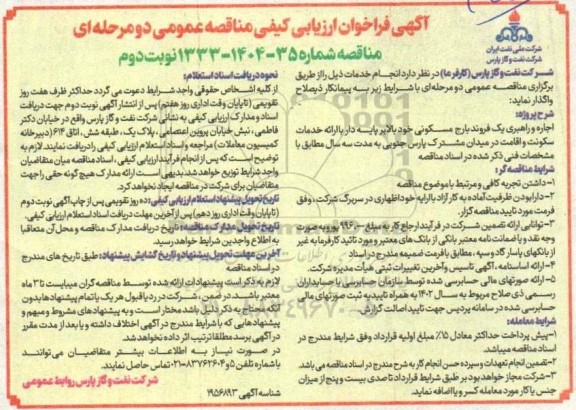 آگهی فراخوان ارزیابی کیفی مناقصه عمومی دو مرحله ای
مناقصه شماره ۳۵-۱۴۰۴-۱۳۳۳ نوبت دوم
شرکت ملی نفت ایران
شرکت نفت و گاز پارس
شرکت نفت و گاز پارس (کارفرما) در نظر دارد انجام خدمات ذیل را از طریق
برگزاری مناقصه عمومی دو مرحله‌ای با شرایط زیر به پیمانکار ذیصلاح
واگذار نماید:
شرح پروژه:
اجاره و راهبری یک فروند بارج مسکونی خود بالابر پایه دار با ارائه خدمات
سکونت و اقامت در میدان مشترک پارس جنوبی به مدت سه سال مطابق با
مشخصات فنی ذکر شده در اسناد مناقصه
شرایط مناقصه گر:
۱-داشتن تجربه کافی و مرتبط با موضوع مناقصه
۲-دارا بودن ظرفیت آماده به کار آزاد با ارایه خود اظهاری در سربرگ شرکت، وفق
فرمت مورد تایید مناقصه گزار.
۳-توانایی ارائه تضمین شرکت در فرآیند ارجاع کار به مبلغ
وجه نقد و یا ضمانت نامه معتبر بانکی از بانک های معتبر و مورد تائید کارفرما به غیر
از بانکهای پاسارگاد و سپه، مطابق با فرمت ضمیمه مندرج در اسناد
۴-ارائه اساسنامه، آگهی تاسیس و آخرین تغییرات ثبتی هیأت مدیره شرکت.
۵-ارائه صورتهای مالی حسابرسی شده توسط سازمان حسابرسی یا حسابداران
رسمی ذی صلاح مربوط به سال ۱۴۰۲ به همراه تاییدیه ثبت صورتهای مالی
حسابرسی شده در سامانه پردیس جهت تایید اصالت گزارش
شرایط معامله:
۱-پیش پرداخت حداکثر معادل ۱۵٪ مبلغ اولیه قرارداد وفق شرایط مندرج در
اسناد مناقصه میباشد.
۲-تضمین انجام تعهدات و سپرده حسن انجام کار به شرح مندرج در اسناد مناقصه می باشد.
۳-شرکت مجاز خواهد بود بر طبق شرایط قرارداد تا صدی بیست و پنج از میزان
جنس یا کار مورد معامله کسر و یا اضافه نماید.
نحوه دریافت اسناد استعلام:
از کلیه اشخاص حقوقی واجد شرایط دعوت می گردد حداکثر ظرف هفت روز
تقویمی (تا پایان وقت اداری روز هفتم) پس از انتشار آگهی نوبت دوم جهت دریافت
اسناد و مدارک ارزیابی کیفی به نشانی شرکت نفت و گاز پارس واقع در خیابان دکتر
فاطمی، نبش خیابان پروین اعتصامی، پلاک یک، طبقه شش، اتاق ۶۱۴ (دبیرخانه
کمیسیون معاملات) مراجعه و اسناد استعلام ارزیابی کیفی را دریافت نمایند. لازم به
توضیح است که پس از انجام فرآیند ارزیابی کیفی، اسناد مناقصه میان متقاضیان
واجد شرایط توزیع خواهد شد. بدیهی است ارائه مدارک هیچ گونه حقی را جهت
متقاضیان برای شرکت در مناقصه ایجاد نخواهد کرد.
تاریخ تحویل پیشنهاد استعلام ارزیابی کیفی: ده روز تقویمی پس از چاپ آگهی نوبت دوم
(تا پایان وقت اداری روز دهم) پس از آخرین مهلت دریافت اسناد استعلام ارزیابی کیفی.
تاریخ تحویل مدارک مناقصه: تاریخ دریافت مدارک مناقصه و محل آن متعاقبا
به اطلاع واجدین شرایط خواهد رسید.
آخرین مهلت تحویل پیشنهاد و تاریخ گشایش پیشنهاد: طبق تاریخ های مندرج
در اسناد مناقصه
لازم به ذکر است پیشنهادات ارائه شده توسط مناقصه گران میبایست تا ۳ ماه
معتبر باشد. در ضمن، شرکت در رد یا قبول هر یک یا تمام پیشنهادها بدون
احتیاج به ذکر دلیل باشد مختار است و به پیشنهادهای مشروط و مبهم و
پیشنهادهایی که با شرایط مندرج در آگهی اختلاف داشته و یا بعد از مدت مقرر
در آگهی برسد مطلقا ترتیب اثر داده نخواهد شد.
در صورت نیاز به اطلاعات بیشتر متقاضیان می توانند
با شماره تلفن ۵ و ۸۳۷۶۲۶۰۴-۰۲۱ تماس حاصل نمایند.
شرکت نفت و گاز پارس روابط عمومی
شناسه آگهی ۱۹۵۶۸۹۳